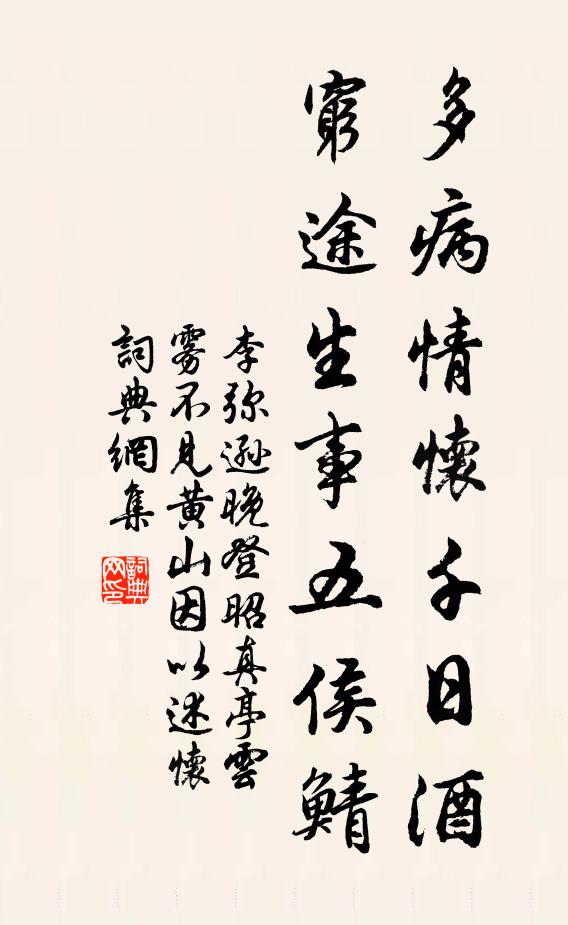 多病情懷千日酒
窮途生事五侯鯖
李弥遜晚登昭真亭雲
雾不見黄山因以述懷
詞典網集
詞典
网印